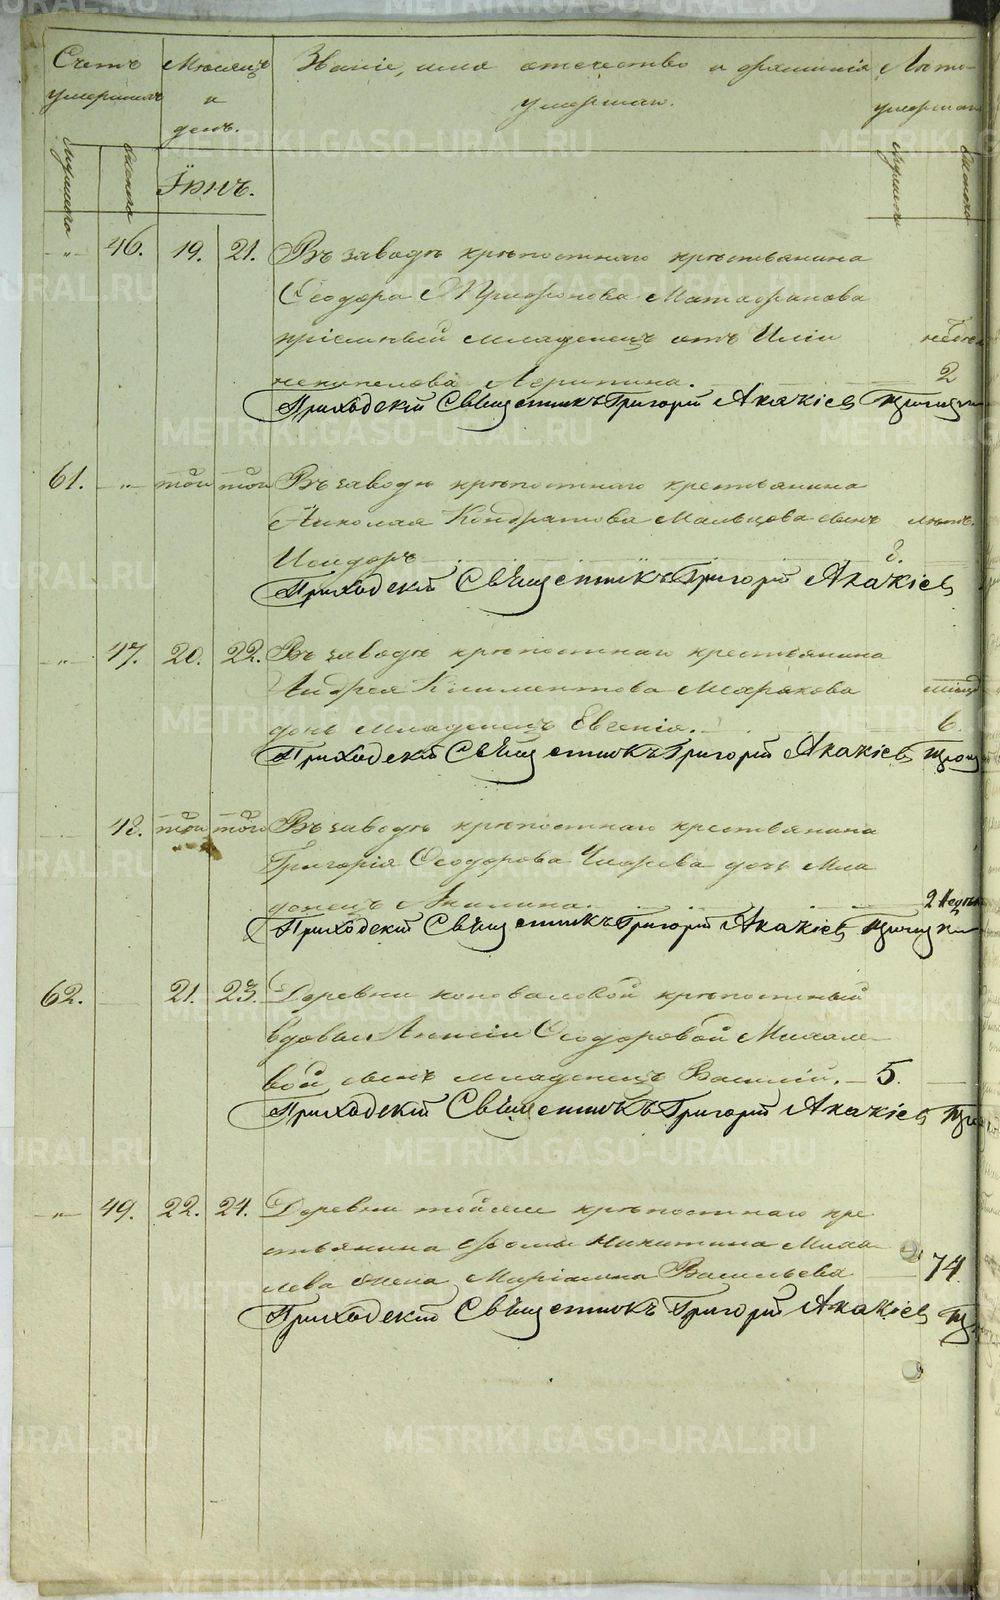 Счетъ умершихъ
Мѣсяцъ и день.
Званіе, имя отечество и фамилія
умершаго.
Лѣта умершаго
мужска
женска
мужска
женска
Іюнь.
„ 46. 19. 21. Въ заводѣ крѣпостнаго крестьянина
Ѳеодора Матафонова
пріемный младенецъ отъ
недѣль
2
Приходскій Священникъ Григорій Акакіевъ
61. „ той той Въ заводѣ крѣпостнаго крестьянина
Николая Кондратова Мальцова сынъ лѣтъ.
Исидоръ
Приходскій Священникъ Григорій Акакіевъ
„ 47. 20. 22. Въ заводѣ крѣпостнаго крестьянина
Андрея Климентова
дочь младенецъ Евгенія. 6.
Приходскій Священникъ Григорій Акакіевъ
48. той той Въ заводѣ крѣпостнаго крестьянина
Григорія Ѳеодорова дочь мла
денецъ Акилина. 2
Приходскій Священникъ Григорій Акакіевъ
62. 21. 23. Деревни Коноваловой крѣпостный
вдовы Ѳеодоровой Михале
вой сынъ младенецъ Василій. 5.
Приходскій Священникъ Григорій Акакіевъ
„ 49. 22. 24. Деревни тойже крѣпостнаго кре
стьянина Ѳомы Никитина Миха
лева жена Маріамна Васильева 74.
Приходскій Священникъ Григорій Акакіевъ
METRIKI.GASO-URAL.RU